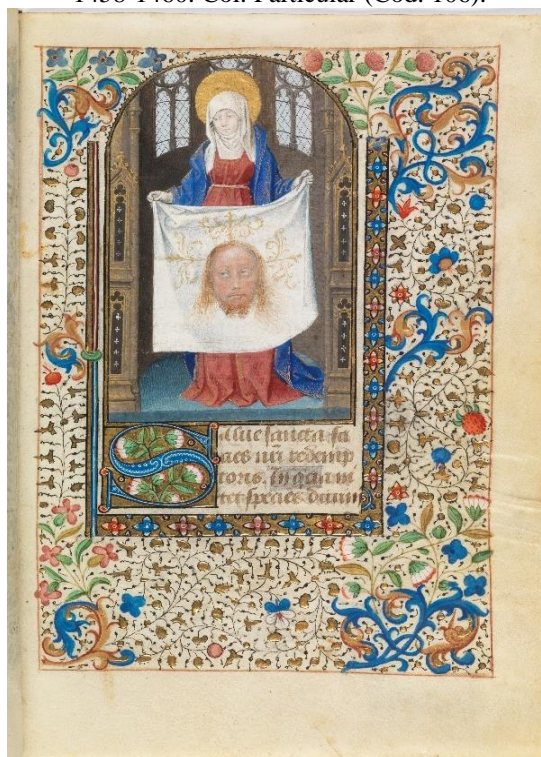 1458-1460. Col. Particular (Cod. 106).
Salue sancta fa
cies nri redemp
toris. In qua ni
tet species diuini